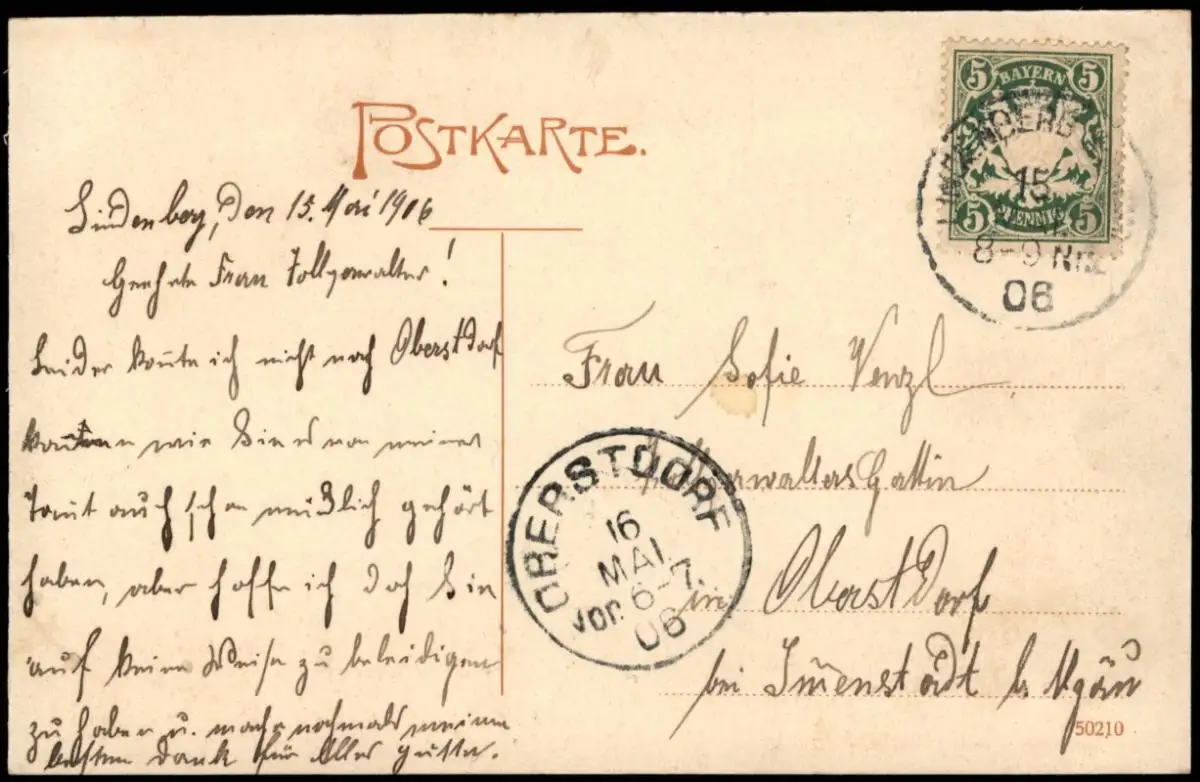 POSTKARTE.
BAYERN
5 5
5 PFENNIG 5
LINDENBERG
15
8-9 Nm
06
Lindenberg, den 15. Mai 1906
Geehrte Frau Zollverwalter!
Leider konte ich nicht nach Oberstdorf
komen wie Sie es von meiner
Tant auch schon mündlich gehört
haben, aber hoffe ich doch Sie
auf keine Weise zu beleidigen
zu haben u. mache nochmals meinen
besten Dank für Alles gutte.
Frau Sofie Venzl
Zollverwalters Gattin
in Oberstdorf
bei Imenstadt b. Algäu
OBERSTDORF
16
MAI
Vor. 6-7.
06
50210